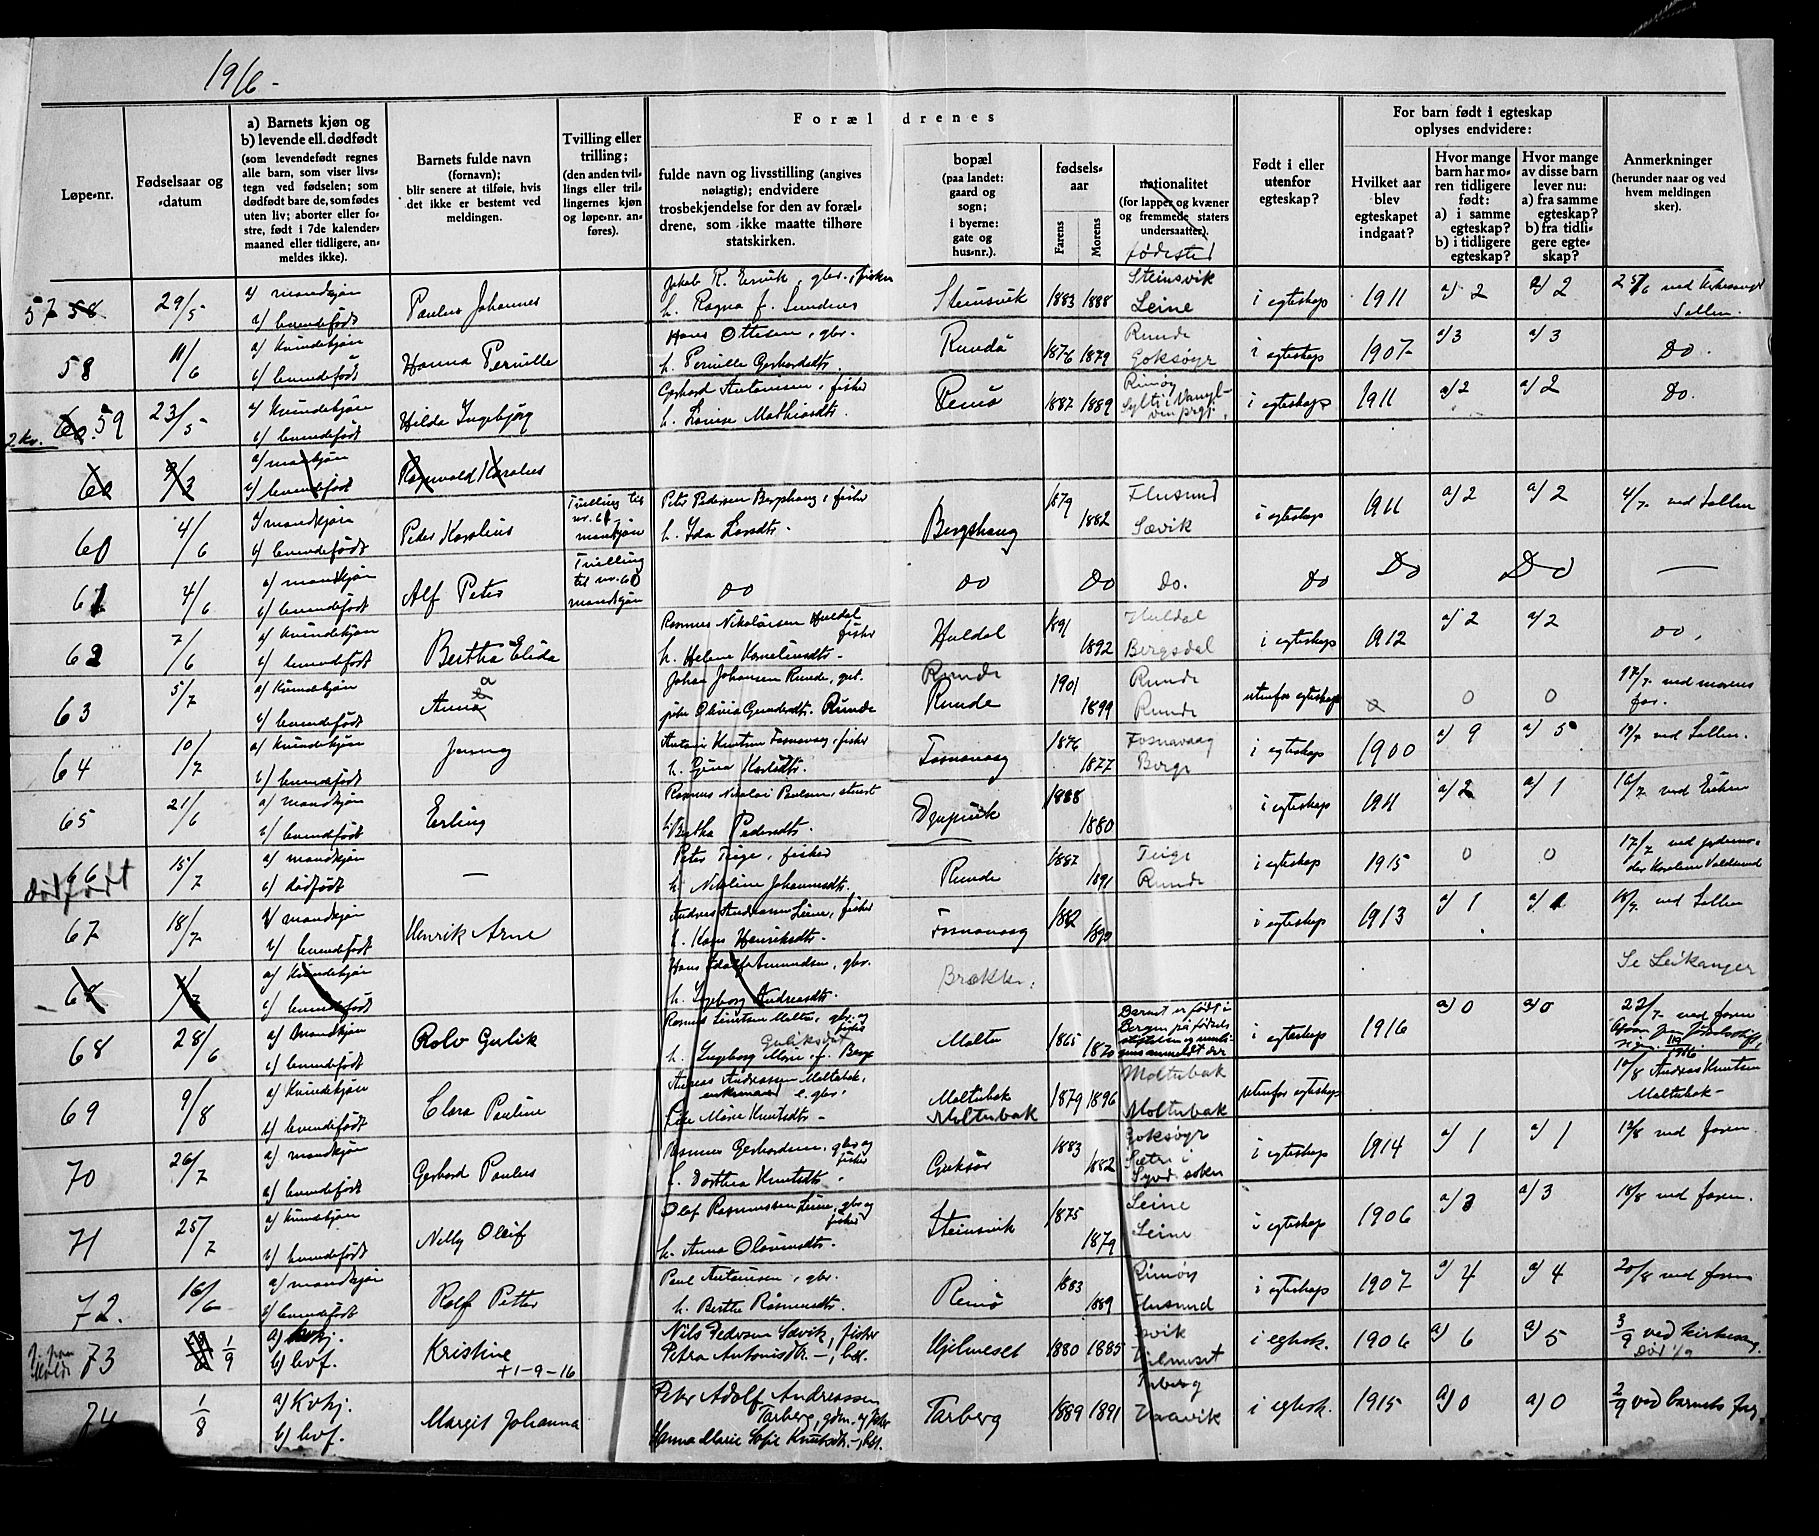 1916.
Løpe-nr.
Fødselsaar og -datum
a) Barnets kjøn og
b) levende ell. dødfødt
(som levendefødt regnes
alle barn, som viser livs-
tegn ved fødselen; som
dødfødt bare de, som fødes
uten liv; aborter eller fo-
stre, født i 7de kalender-
maaned eller tidligere, an-
meldes ikke).
Barnets fulde navn
(fornavn);
blir senere at tilføie, hvis
det ikke er bestemt ved
meldingen.
Tvilling eller
trilling;
(den anden tvil-
lings eller tril-
lingernes kjøn
og løpe-nr. an-
føres).
Forældrenes
fulde navn og livsstilling (angives
nøiagtig); endvidere
trosbekjendelse for den av foræl-
drene, som ikke maatte tilhøre
statskirken.
bopæl
(paa landet:
gaard og
sogn;
i byerne:
gate og
hus-nr.).
fødsels-
aar
Farens
Morens
nationalitet
(for lapper og kvæner
og fremmede staters
undersaatter).
fødested
Født i eller
utenfor
egteskap?
For barn født i egteskap
oplyses endvidere:
Hvilket aar
blev
egteskapet
indgaat?
Hvor mange
barn har mo-
ren tidligere
født:
a) i samme
egteskap?
b) i tidligere
egteskap?
Hvor mange
av disse barn
lever nu:
a) fra samme
egteskap?
b) fra tidli-
gere egte-
skap?
Anmerkninger
(herunder naar og ved
hvem meldingen
sker).
57 58 29/5 a) mandkjøn b) levendefødt Paulus Johannes
h. Ragna f.
Steinsvik 1883 1888 Steinsvik Leine i egteskap 1911 a) 2 a) 2
58 11/6 a) kvindekjøn b) levendefødt Hanna Pernille
Hans Ottesen, gbr.
h. Pernille Gerhardsdtr.
Rundø 1876 1879 Runde Goksøyr i egteskap 1907 a) 3 a) 3 Do.
2 kv. 60. 59 23/5 a) kvindekjøn b) levendefødt Hilda Ingebjørg
Gerhard Antonisen, fisker
h. Lovise Mathiasdtr.
Remø 1887 1889 Rimøy i egteskap 1911 a) 2 a) 2 Do.
60 9/3 a) mandkjøn b) levendefødt Ragnvald Karolus
60 4/6 a) mandkjøn b) levendefødt Peder Karolius Tvilling til nr. 61 mandkjøn
Peter Pedersen Bergshaug, fisker
h. Ida
Bergshaug 1879 1882 Flusund Sævik i egteskap 1911 a) 2 a) 2 4/7 ved
61 4/6 a) mandkjøn b) levendefødt Alf Peter Tvilling til nr. 60 mandkjøn
Do Do Do Do. Do Do Do —
62 7/6 a) kvindekjøn b) levendefødt Bertha Elida
Rasmus Nikolaisen Huldal fisker
h. Helene Kornelinsdtr.
Huldal 1891 1892 Huldal Bergsdal i egteskap 1912 a) 2 a) 2 Do.
63 5/7 a) kvindekjøn b) levendefødt Anna
Johan Johansen Runde, gut.
pike Olivia Gundersdtr. Runde
Runde Runde 1901 1899 Runde Runde utenfor egteskap 0 0 0 17/7 ved morens far.
64 10/7 a) kvindekjøn b) levendefødt Jenny
Antoni Knutsen Fosnavaag, fisker
h. Gina
Fosnavaag 1876 1877 Fosnavaag Berge i egteskap 1900 a) 9 a) 5 19/7 ved
65 21/6 a) mandkjøn b) levendefødt Erling
Rasmus Nikolai Paulsen,
h. Bertha Pedersdtr.
Djupvik 1888 1880 i egteskap 1911 a) 2 a) 1
66 dødfødt 15/7 a) mandkjøn b) dødfødt —
Peter Teige, fisker
h. Nikoline Johannesdtr.
Runde 1887 1891 Teige Runde i egteskap 1915 0 0 17/7 ved jordemo-
der Karoline
67 18/7 a) mandkjøn b) levendefødt Henrik Arne
Andreas Andreassen Leine, fisker
h. Hans Henriksdtr.
Fosnavaag 1882 1890 i egteskap 1913 a) 1 a) 1 18/7 ved
68 a) kvindekjøn b) levendefødt
Hans Adolf Amundsen, gbr.
h. Ingeborg Andreasdtr.
Brække. Se Leikanger
68 28/6 a) mandkjøn b) levendefødt Rolv Gulik
Rasmus Knutsen Moltu, gbr. og fisker
h. Ingeborg Marie f. Berge Guliksdat
Moltu 1865 1870 Barnet er født i
Bergen paa fødsels-
stiftelsen
i egteskap 1916 a) 0 a) 0 22/7 ved faren
69 9/8 a) kvindekjøn b) levendefødt Clara Pauline
Andreas Andreassen Moltubak, enkemand e. gbr.
Marie Knutsdtr.
Moltubak Moltubak 1879 1896 Moltubak Moltubak utenfor egteskap 10/8 Andreas Knutsen Moltubak
70 26/7 a) mandkjøn b) levendefødt Gerhard Paulus
Rasmus Gerhardsen, gbr og fisker
h. Dorthea Knutsdtr.
Goksør 1883 1882 Goksøyr Sætre i i egteskap 1914 a) 1 a) 1 12/8 ved faren
71 25/7 a) kvindekjøn b) levendefødt Nelly Oleif
Olaf Rasmussen Leine, gbr og fisker
h. Anna
Steinsvik 1875 1879 Leine Leine i egteskap 1906 a) 3 a) 3 18/8 ved faren.
72. 16/6 a) mandkjøn b) levendefødt Rolf Petter
Paul Antonisen, gbr.
h. Berthe Rasmusdtr.
Remø 1883 1889 Rimøy Flusund i egteskap 1907 a) 4 a) 4 20/8 ved faren
73 1/9 a) kvkj. b) levf. Kristine +1-9-16
Nils Pedersen Sævik, fisker
Petra Antonisdtr. —, hst.
Hjelmeset 1880 1885 i egtesk. 1906 a) 6 a) 5 3/9 ved kirkesang. Død 1/9
74 1/8 a) Kvkj. b) levf. Margit Johanna
Peter Adolf Andreassen
Tarberg, gdm. og fisker
Hanna Marie Sofie Knutsdtr. —, hst.
Tarberg 1889 1891 Tarberg Vaavik i egtesk. 1915 a) 0 a) 0 2/9 ved barnets far